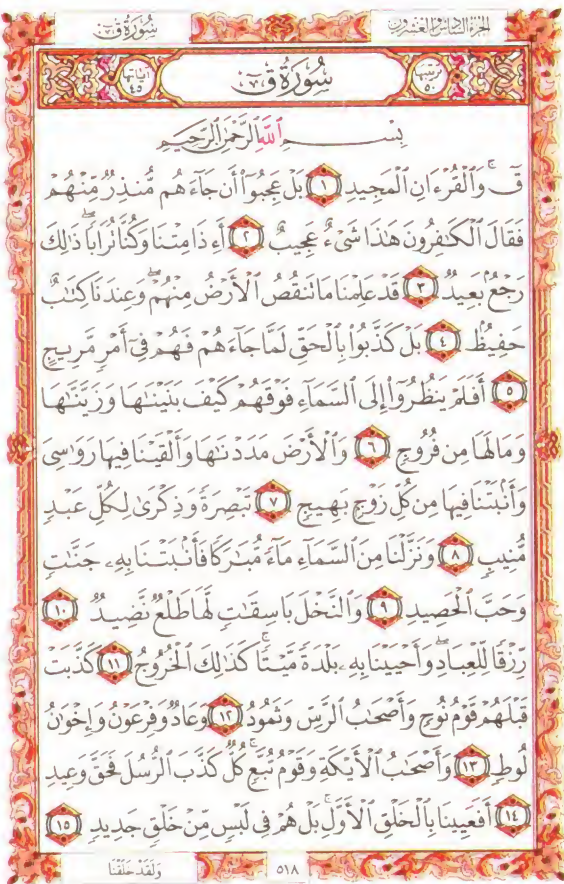 الجزء السادس والعشرون
سُورَةُ ق
ترتيبها ٥٠
سُورَةُ ق
آياتها ٤٥
بِسْمِ ٱللَّهِ ٱلرَّحْمَٰنِ ٱلرَّحِيمِ
قٓ ۚ وَٱلْقُرْءَانِ ٱلْمَجِيدِ ١ بَلْ عَجِبُوٓا۟ أَن جَآءَهُم مُّنذِرٌ مِّنْهُمْ
فَقَالَ ٱلْكَٰفِرُونَ هَٰذَا شَىْءٌ عَجِيبٌ ٢ أَءِذَا مِتْنَا وَكُنَّا تُرَابًا ۖ ذَٰلِكَ
رَجْعٌۢ بَعِيدٌ ٣ قَدْ عَلِمْنَا مَا تَنقُصُ ٱلْأَرْضُ مِنْهُمْ ۖ وَعِندَنَا كِتَٰبٌ
حَفِيظٌۢ ٤ بَلْ كَذَّبُوا۟ بِٱلْحَقِّ لَمَّا جَآءَهُمْ فَهُمْ فِىٓ أَمْرٍ مَّرِيجٍ
٥ أَفَلَمْ يَنظُرُوٓا۟ إِلَى ٱلسَّمَآءِ فَوْقَهُمْ كَيْفَ بَنَيْنَٰهَا وَزَيَّنَّٰهَا
وَمَا لَهَا مِن فُرُوجٍ ٦ وَٱلْأَرْضَ مَدَدْنَٰهَا وَأَلْقَيْنَا فِيهَا رَوَٰسِىَ
وَأَنۢبَتْنَا فِيهَا مِن كُلِّ زَوْجٍۭ بَهِيجٍ ٧ تَبْصِرَةً وَذِكْرَىٰ لِكُلِّ عَبْدٍ
مُّنِيبٍ ٨ وَنَزَّلْنَا مِنَ ٱلسَّمَآءِ مَآءً مُّبَٰرَكًا فَأَنۢبَتْنَا بِهِۦ جَنَّٰتٍ
وَحَبَّ ٱلْحَصِيدِ ٩ وَٱلنَّخْلَ بَاسِقَٰتٍ لَّهَا طَلْعٌ نَّضِيدٌ ١٠
رِّزْقًا لِّلْعِبَادِ ۖ وَأَحْيَيْنَا بِهِۦ بَلْدَةً مَّيْتًا ۚ كَذَٰلِكَ ٱلْخُرُوجُ ١١ كَذَّبَتْ
قَبْلَهُمْ قَوْمُ نُوحٍ وَأَصْحَٰبُ ٱلرَّسِّ وَثَمُودُ ١٢ وَعَادٌ وَفِرْعَوْنُ وَإِخْوَٰنُ
لُوطٍ ١٣ وَأَصْحَٰبُ ٱلْأَيْكَةِ وَقَوْمُ تُبَّعٍ ۚ كُلٌّ كَذَّبَ ٱلرُّسُلَ فَحَقَّ وَعِيدِ
١٤ أَفَعَيِينَا بِٱلْخَلْقِ ٱلْأَوَّلِ ۚ بَلْ هُمْ فِى لَبْسٍ مِّنْ خَلْقٍ جَدِيدٍ ١٥
٥١٨
وَلَقَدْ خَلَقْنَا